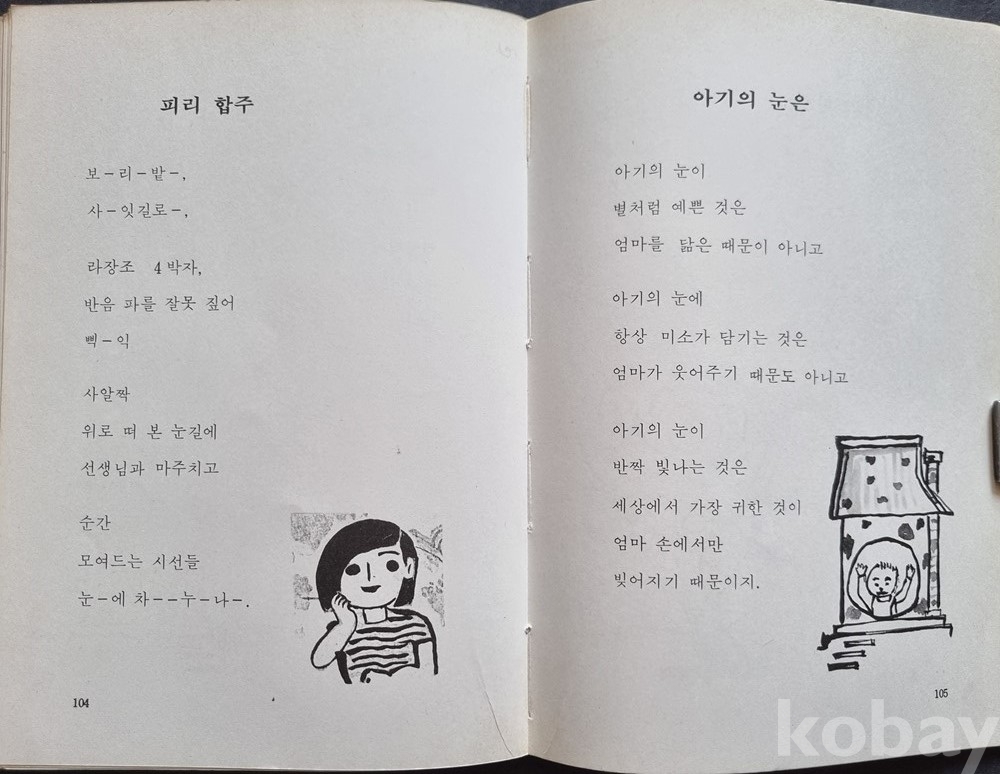 피리 합주
보－리－밭－,
사－잇길로－,
라장조 4박자,
반음 파를 잘못 짚어
삑－익
사알짝
위로 떠 본 눈길에
선생님과 마주치고
순간
모여드는 시선들
눈－에 차－－누－나－.
104
아기의 눈은
아기의 눈이
별처럼 예쁜 것은
엄마를 닮은 때문이 아니고
아기의 눈에
항상 미소가 담기는 것은
엄마가 웃어주기 때문도 아니고
아기의 눈이
반짝 빛나는 것은
세상에서 가장 귀한 것이
엄마 손에서만
빚어지기 때문이지.
105
kobay